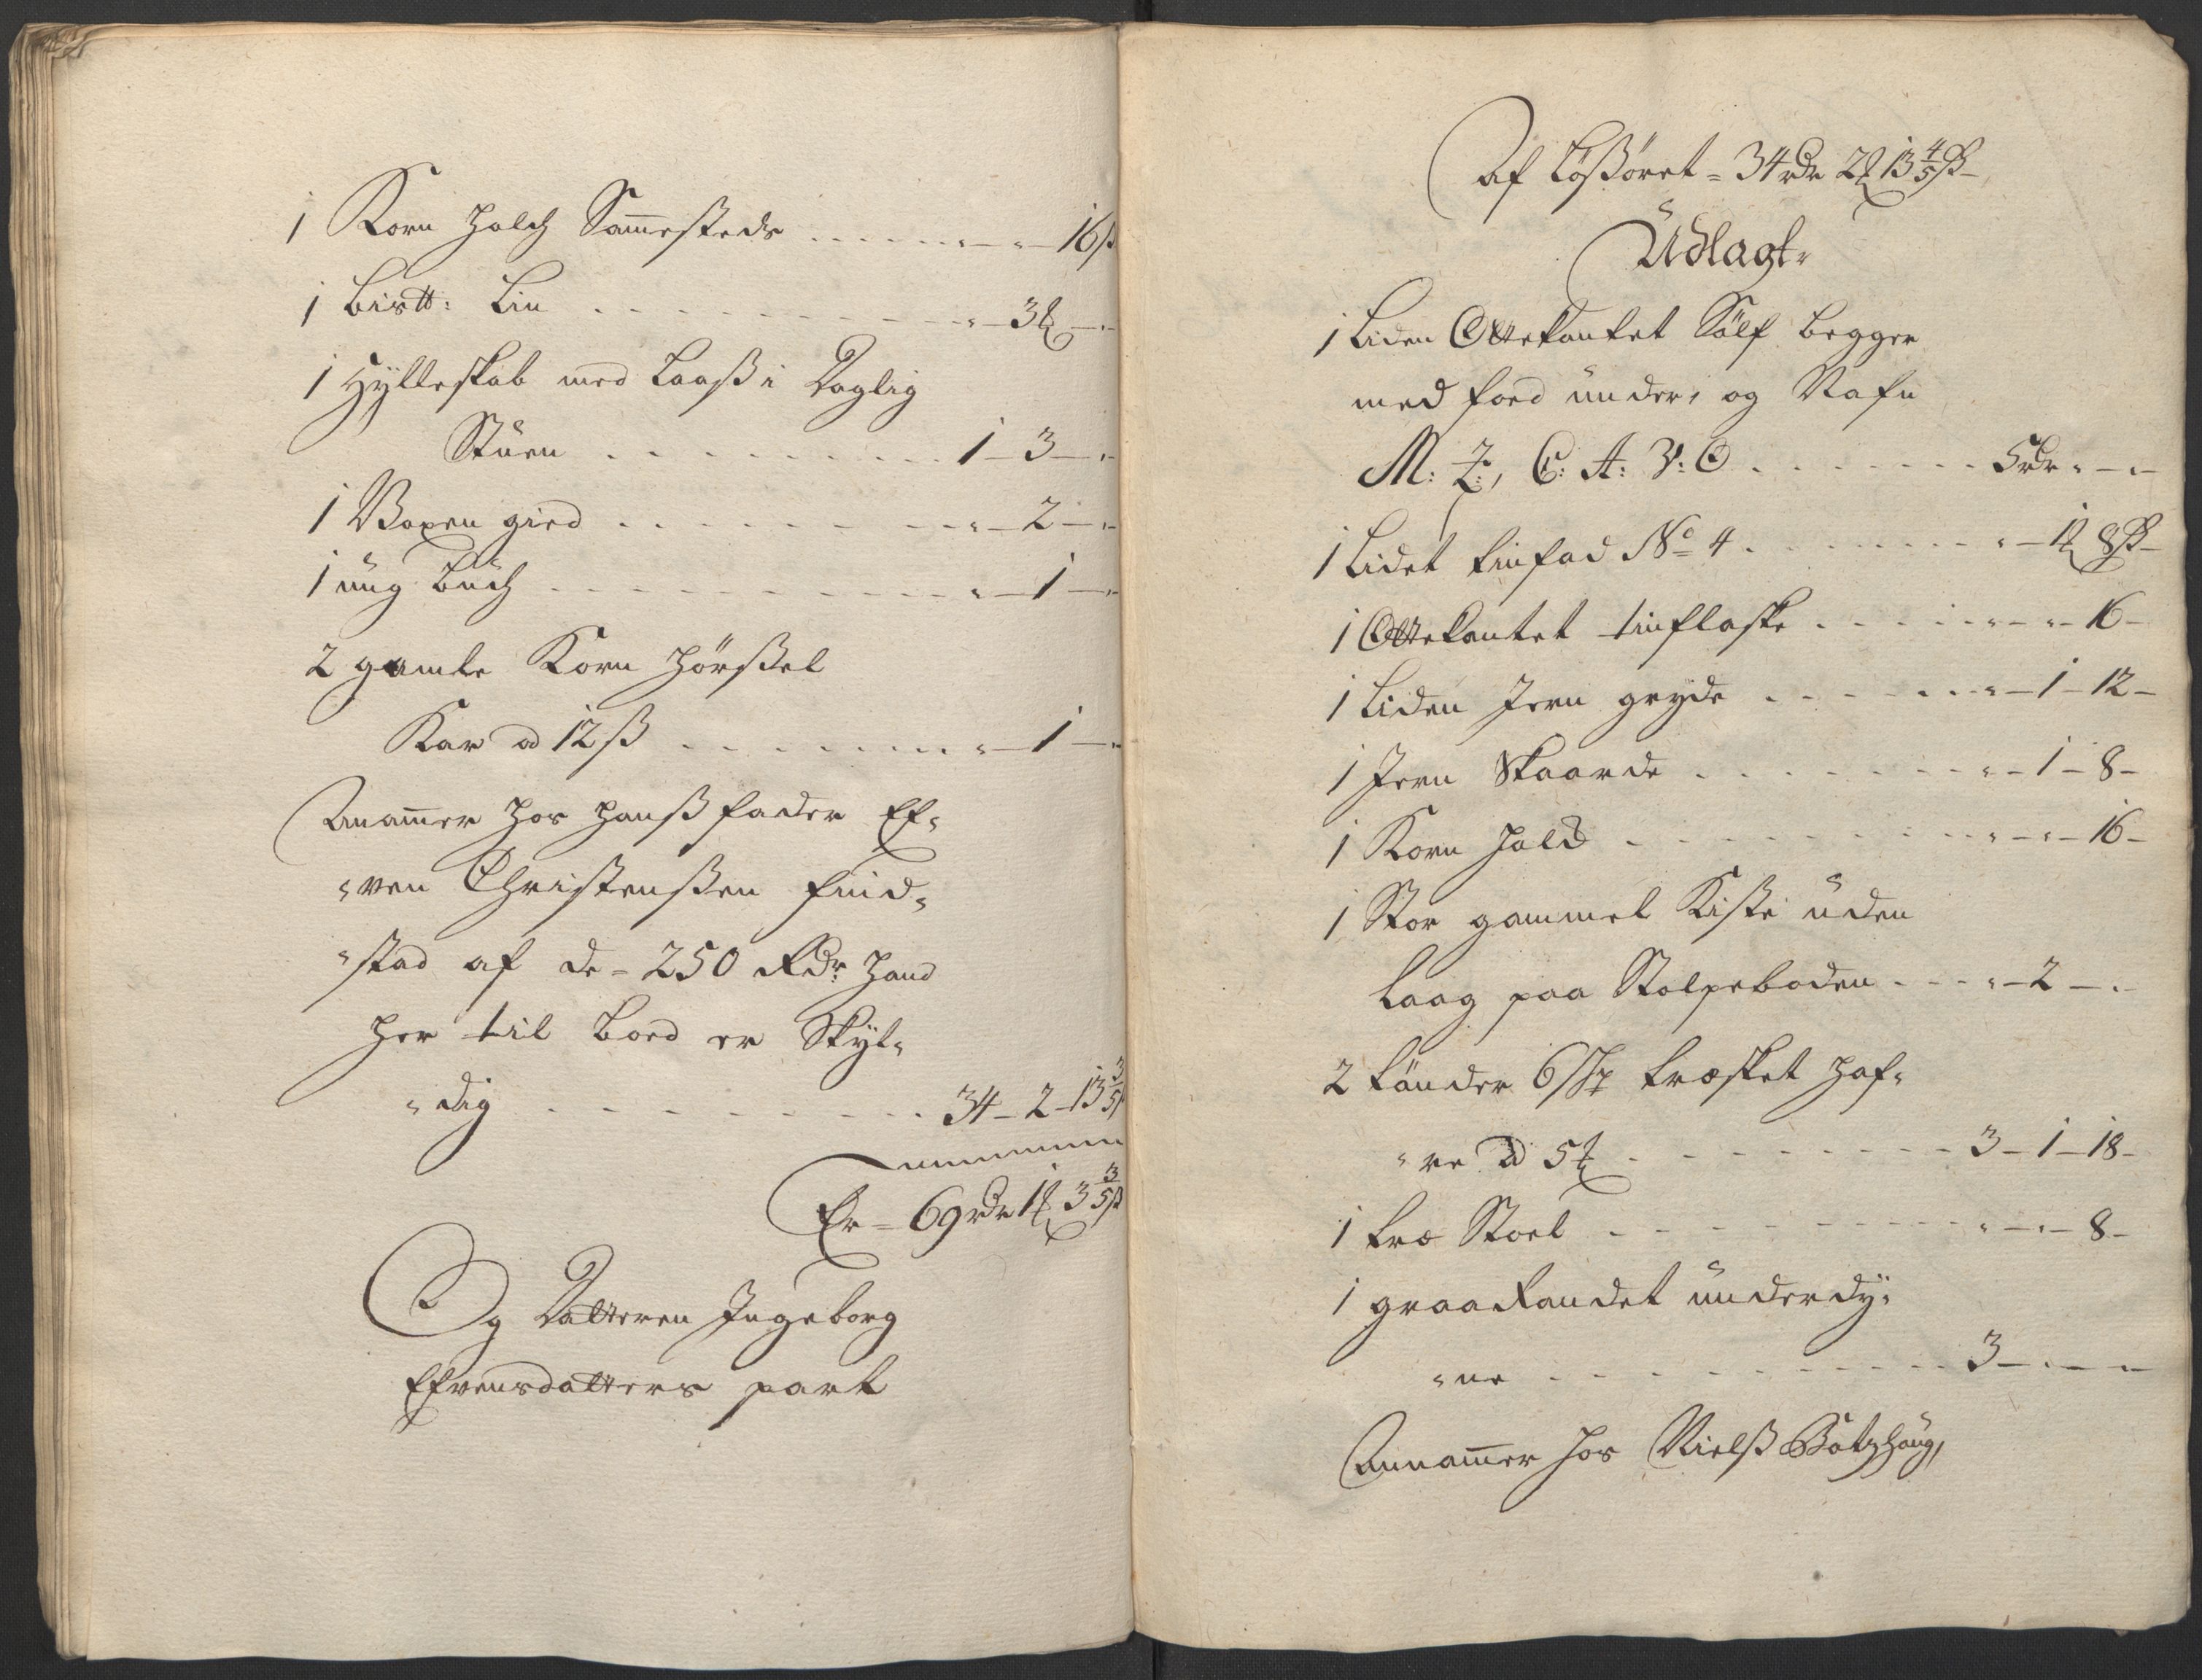 1 Korn Holch Sam̄esteds . . . . . . „ — „ — 16 ß
1 bistt: Lin . . . . . . . . „ — 3 ℔ — „
1 Hÿlleskab med Laaß i Daglig
Stuen . . . . . . . . 1 — 3 — „
1 Voxen gied . . . . . . . „ — 2 — „
1 ŭng Buch . . . . . . . . „ — 1 — „
2 gamle Korn Hörßel
Kar a 12 ß . . . . . . . „ — 1 — „
Anam̄er hos Hanß fader Ef„
„ven Christenßen Find„
„stad af de = 250 Rdr: Hand
her til Boed er Skÿl„
„dig . . . . . . . . 34 — 2 — 13 3/5 ß
Er = 69 rdr 1 ℔ 3 3/5 ß
Og Datteren Ingeborg
Efvensdatters part
Af Lößöret = 34 rdr 2 ℔ 13 4/5 ß
Ŭdlagt„
1 Liden Ottekantet Sölf begger
med foed ŭnder, og Nafn
M: Z:, C: A: V: O . . . . . . 5 rdr „ — „
1 Lidet tinfad No 4 . . . . . . „ — 1 ℔ 8 ß
1 Ottekantet tinflaske . . . . „ — „ — 16 —
1 Liden Jern gryde . . . . . „ — 1 — 12 —
1 Jern Skaarde . . . . . . . „ — 1 — 8 —
1 Korn Hold . . . . . . . „ — „ — 16 —
1 Stor gammel Kiste ŭden
Laag paa Stolpeboden . . . „ — 2 — „
2 tönder 6 Skp træsket Haf„
„re a 5 ℔ . . . . . . . . 3 — 1 — 18 —
1 træ Stoel . . . . . . . „ — „ — 8 —
1 graa Randet ŭnderdÿ„
„ne . . . . . . . . . 3 — „ — „
Annam̄er hos Nielß Botzhaŭg,